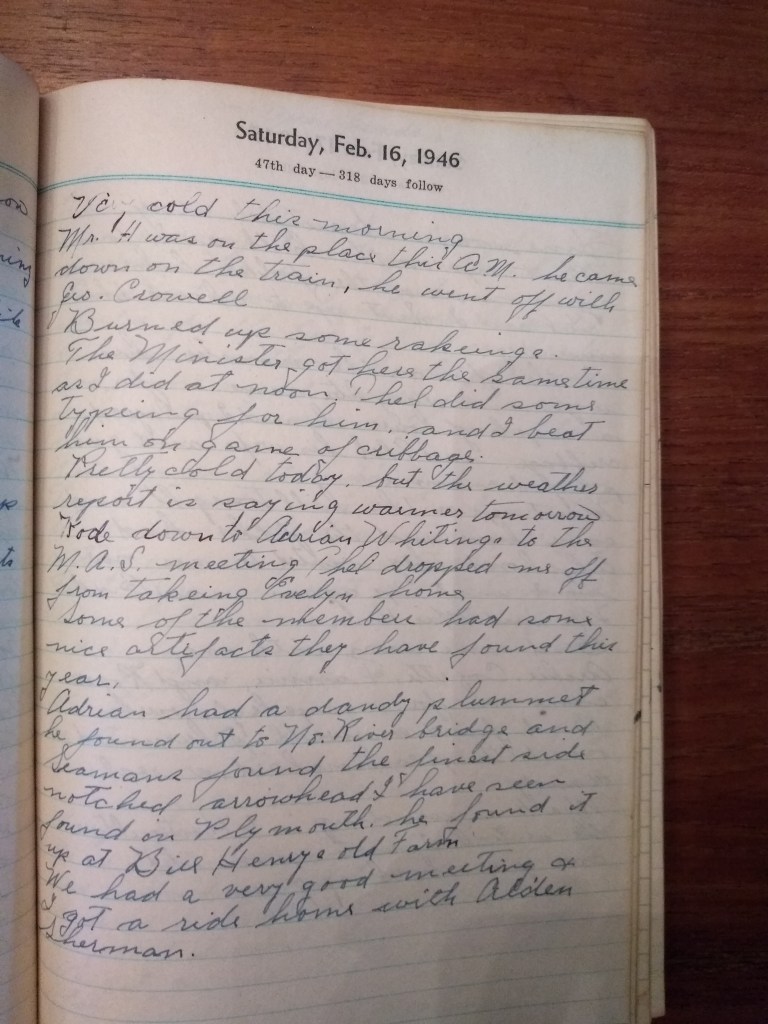 Saturday, Feb. 16, 1946
47th day — 318 days follow
cold this morning
Mr. H was on the place this A.M. he came
down on the train, he went off with
Geo. Crowell
Burned up some rakeings.
The Minister got here the same time
as I did at noon. Phel did some
typeing for him. and I beat
him on game of cribbage.
Pretty cold today. but the weather
report is saying warmer tomorrow
Rode down to Adrian Whitings to the
M.A.S. meeting Phel dropped me off
from takeing Evelyn home
Some of the members had some
nice artefacts they have found this
year.
Adrian had a dandy plummet
he found out to No. River bridge and
Seamans found the finest side
notched arrowhead I have seen
found in Plymouth. he found it
up at Bill Henrys old Farm
We had a very good meeting &
I got a ride home with Alden
Sherman.